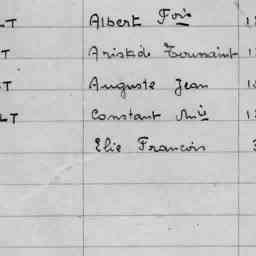 LT Albert Fois 1
T Aristide Toussaint 1
T Auguste Jean 1
LT Constant 1
Elie Francois